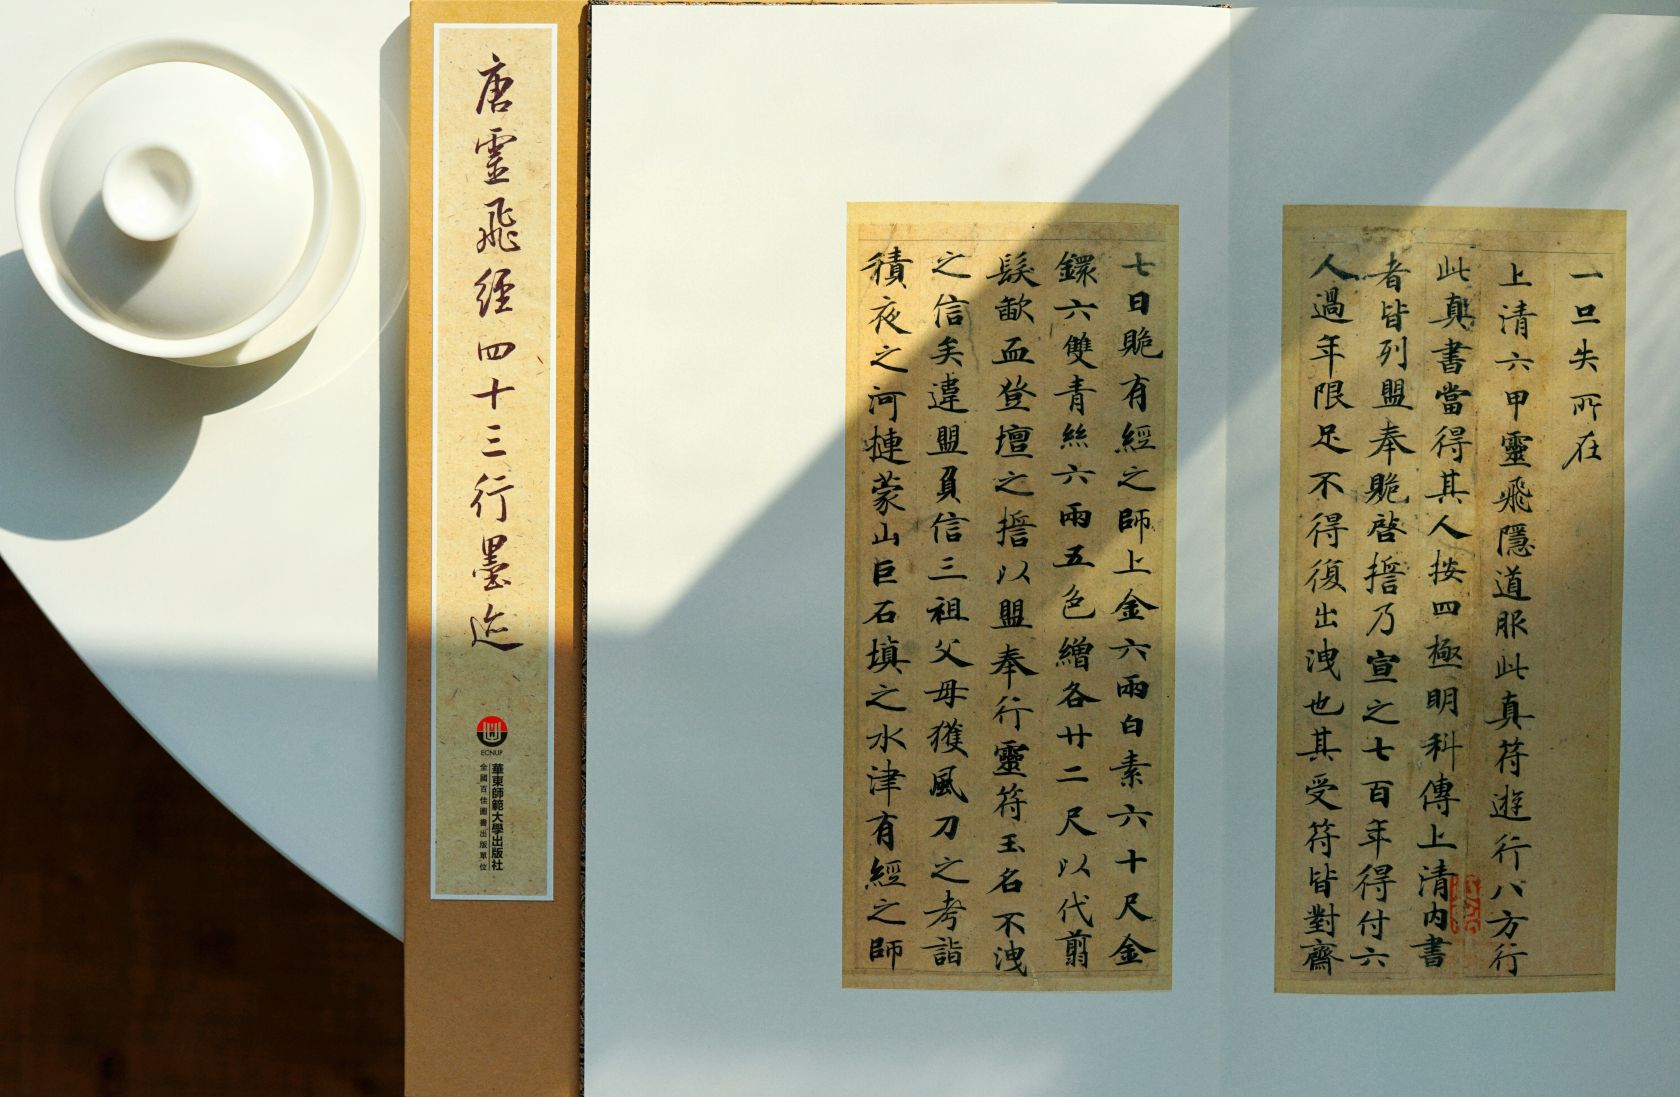 一旦失所在
上清六甲靈飛隱道服此真符遊行八方行
此真書當得其人按四極明科傳上清内書
者皆列盟奉貺啓誓乃宣之七百年得付六
人過年限足不得復出洩也其受符皆對齋
七日貺有經之師上金六兩白素六十尺金
鐶六雙青絲六兩五色繒各廿二尺以代翦
髮歃血登壇之誓以盟奉行靈符玉名不洩
之信矣違盟負信三祖父母獲風刀之考詣
積夜之河摙蒙山巨石填之水津有經之師
唐靈飛經四十三行墨迹
ECNUP
華東師範大學出版社
全國百佳圖書出版單位